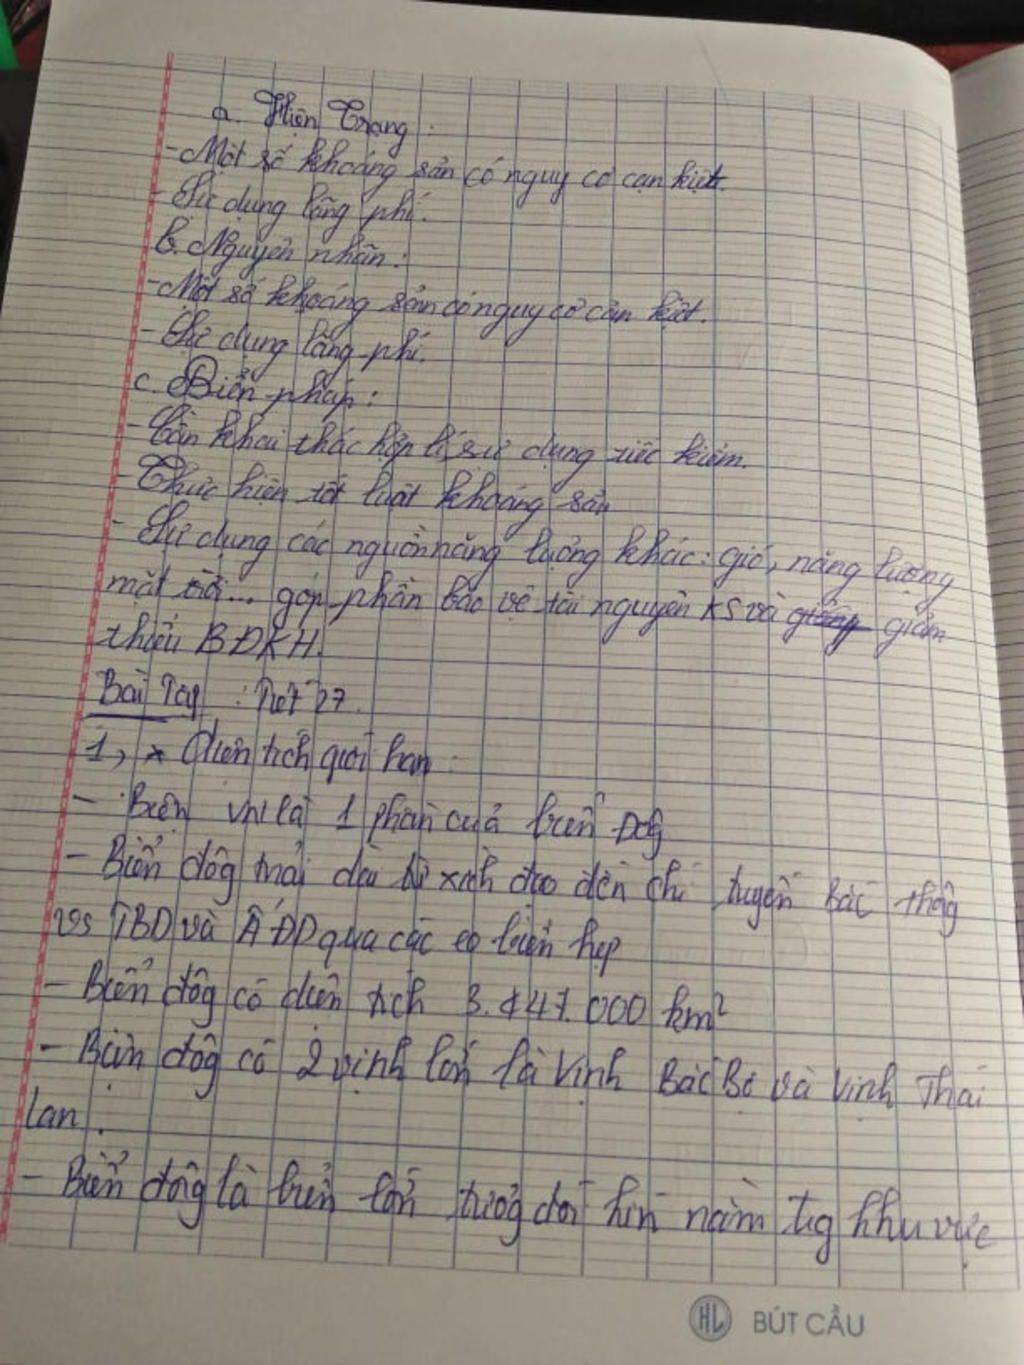 a. Hiện Trạng:
- Một số khoáng sản có nguy cơ cạn kiệt.
- Sử dụng lãng phí.
b. Nguyên nhân:
- Một số khoáng sản có nguy cơ cản kiệt.
- Sử dụng lãng phí.
c. Biển pháp:
- Cần khai thác hợp lí, sử dụng tiếc kiệm.
Thực hiện tốt luật khoáng sản
- Sử dụng các nguồn năng lượng khác: gió, năng lượng
mặt trời... góp phần bảo vệ tài nguyên KS và giảm
thiểu BĐKH.
Bài Tập: Tiết 27.
1, * Diện tích giới hạn
- Biển VN là 1 phần của biển Đôg
- Biển đôg trải dài từ xích đạo đến chí tuyến Bắc thôg
vs TBD và ÂĐD qua các eo biển hẹp
- Biển đôg có diện tích 3.447.000 km²
- Biển đôg có 2 vịnh lớn là Vịnh Bắc Bộ và Vịnh Thái
Lan.
- Biển đôg là biển lớn tươg đối kín nằm trg khu vực
HL BÚT CẦU